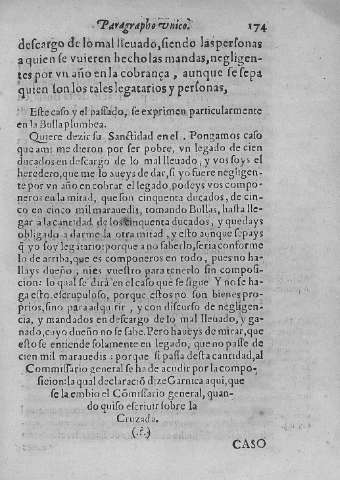 Paragrapho vnico. 174
descargo de lo mal lleuado, siendo las personas
a quien se vuieren hecho las mandas, negligen-
tes por vn año en la cobrança, aunque se sepa
quien son los tales legatarios y personas,
Este caso y el passado, se exprimen particularmente
en la Bulla plombea.
Quiere dezir su Sanctidad en el. Pongamos caso
que a mi me dieron por ser pobre, vn legado de cien
ducados en descargo de lo mal lleuado, y vos soys el
heredero, que me lo aueys de dar, si yo fuere negligen-
te por vn año en cobrar el legado, podeys vos compo-
neros en la mitad, que son cinquenta ducados, de cin-
co en cinco mil marauedis, tomando Bullas, hasta lle-
gar a la cantidad de los cinquenta ducados, y quedays
obligado a darme la otra mitad, y esto aunque sepays
q̃ yo soy legatario: porque a no saberlo, seria conforme
lo de arriba, que es componeros en todo, pues no ha-
llays dueño, ni es vuestro para tenerlo sin composi-
cion: lo qual se dirá en el caso que se sigue Y no se ha-
ga esto escrupuloso, porque estos no son bienes pro-
prios, sino para adquirir, y con discurso de negligen-
cia, y mandados en descargo de lo mal lleuado, y ga-
nado, cuyo dueño no se sabe. Pero haueys de mirar, que
esto se entiende solamente en legado, que no passe de
cien mil marauedis: porque si passa desta cantidad, al
Commissario general se ha de acudir por la compo-
sicion: la qual declaració dize Garnica aqui, que
se la embio el Cõmissario general, quan-
do quiso escriuir sobre la
Cruzada.
(.ſ.)
CASO